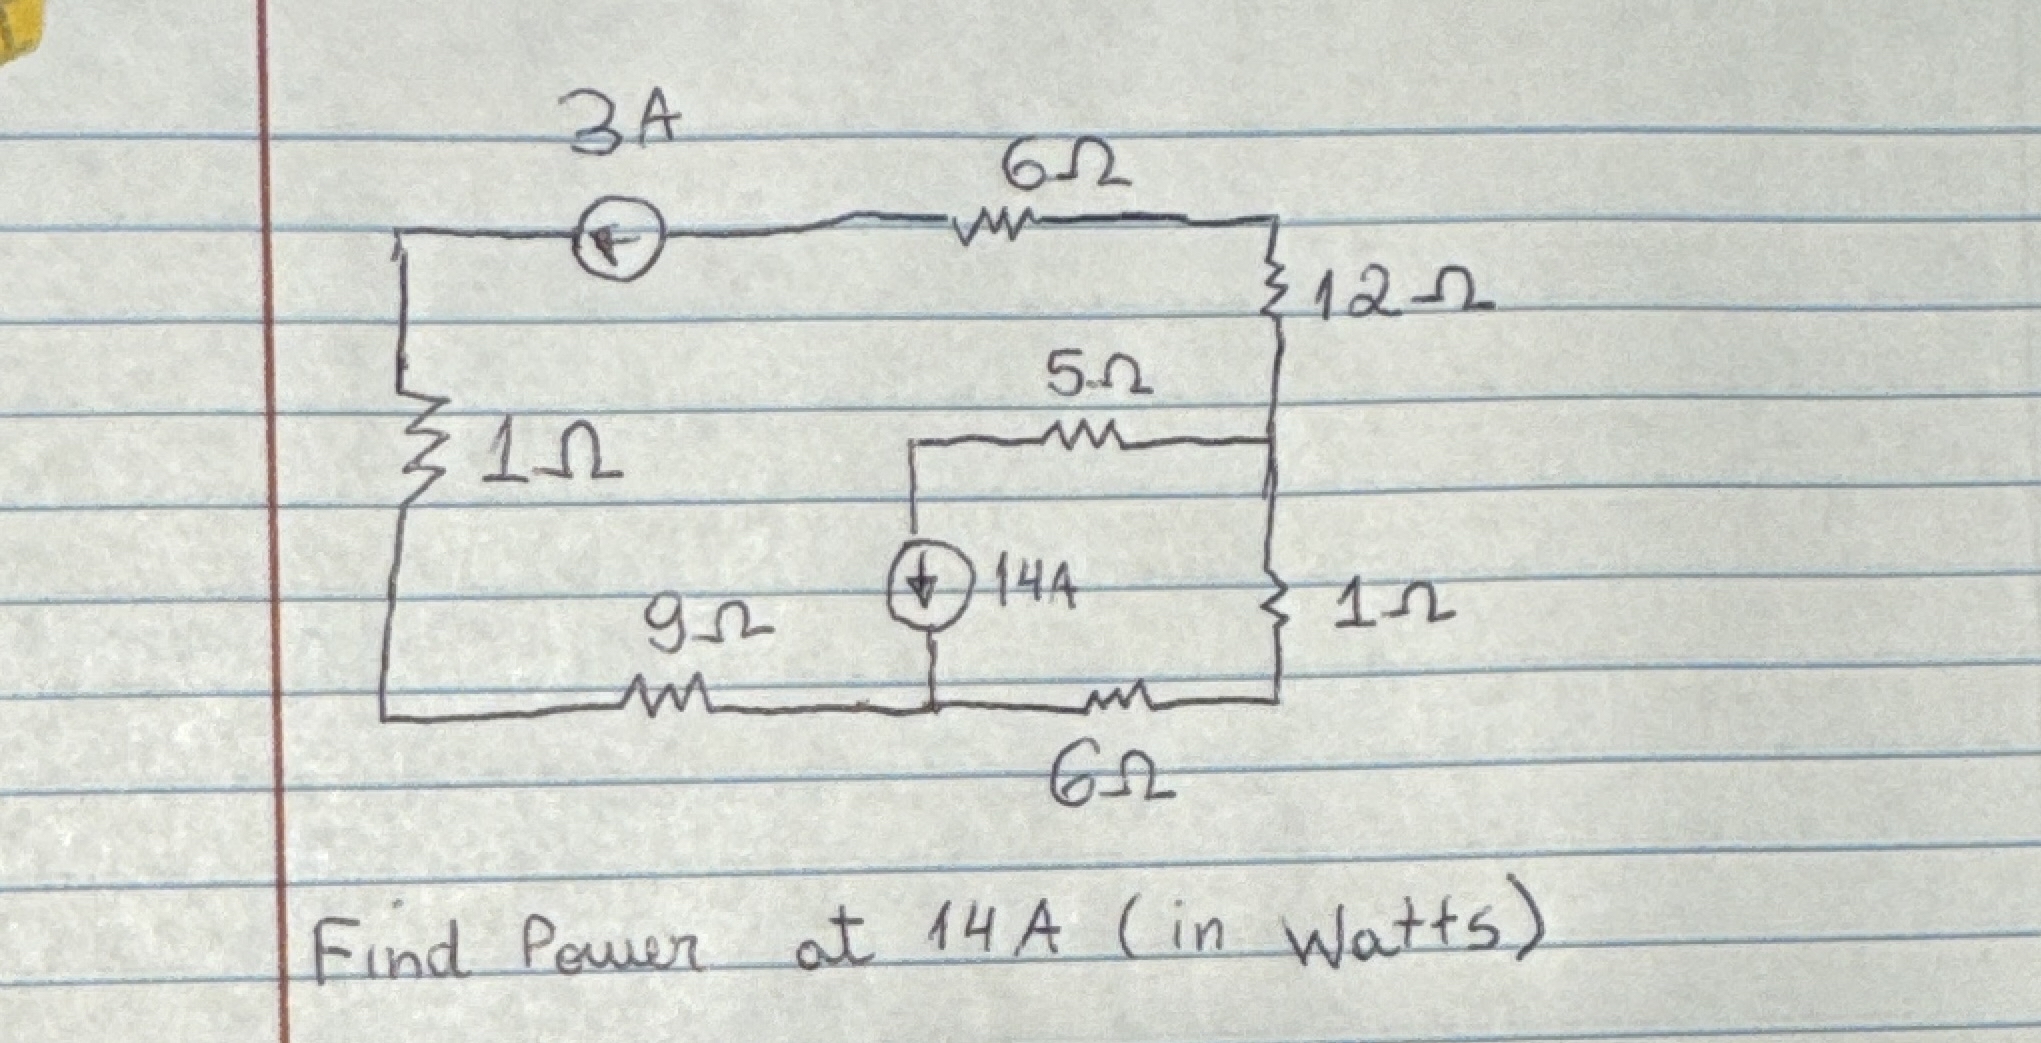 3A
6Ω
12Ω
5Ω
1Ω
14A
9Ω
1Ω
6Ω
Find Power at 14A (in Watts)